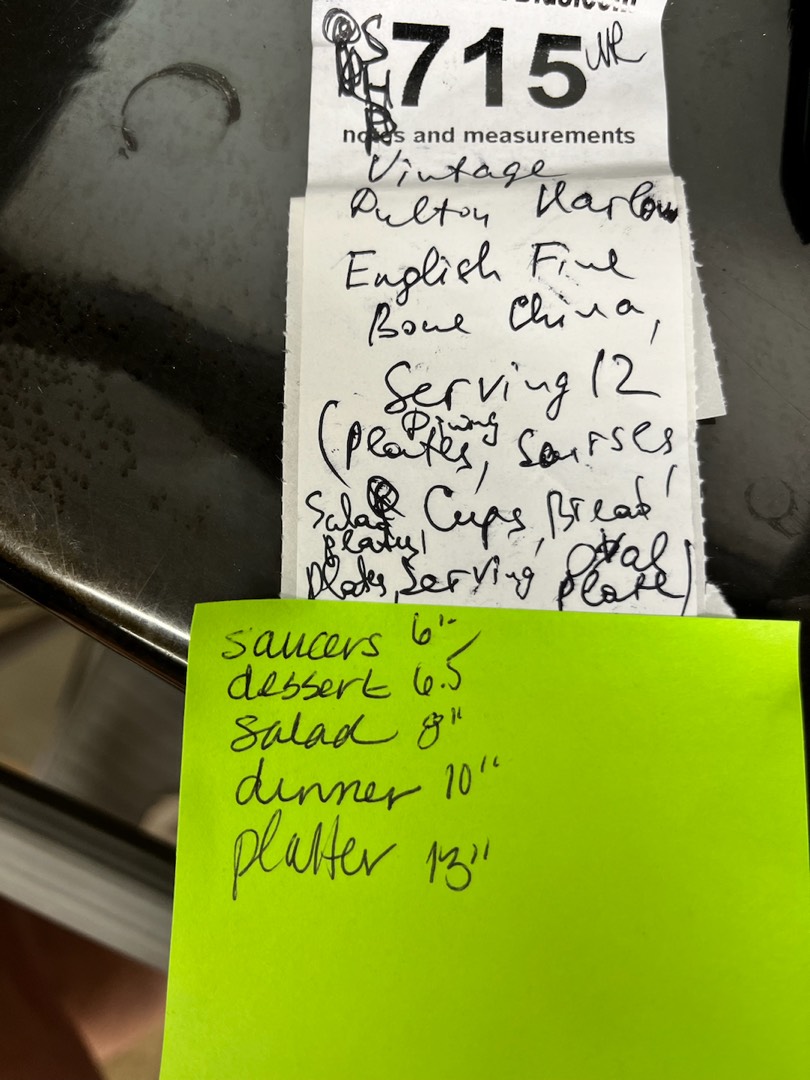 SHP
715 NR
notes and measurements
Vintage
Dulton Harlow
English Fine
Bone China,
Serving 12
Dining
(Plates, Saurses,
Salad Cups, Bread
plates,
Plates, Serving Oval
plate)
saucers 6"
dessert 6.5
salad 8"
dinner 10"
platter 13"